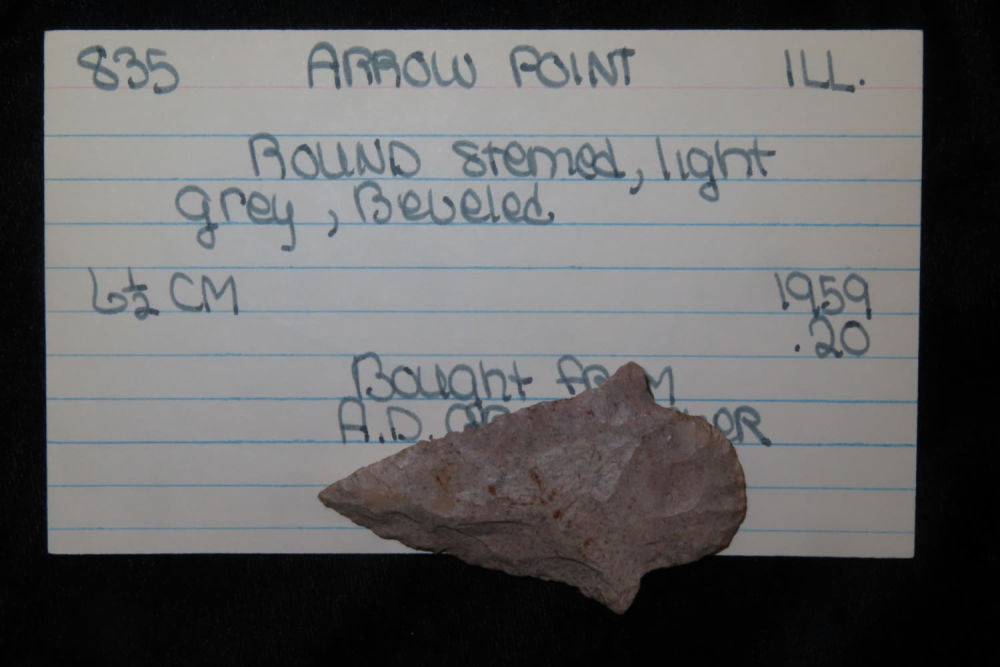 835 ARROW POINT ILL.
ROUND stemed, light
grey, Beveled.
6½ CM 1959
.20
Bought from
A.D.